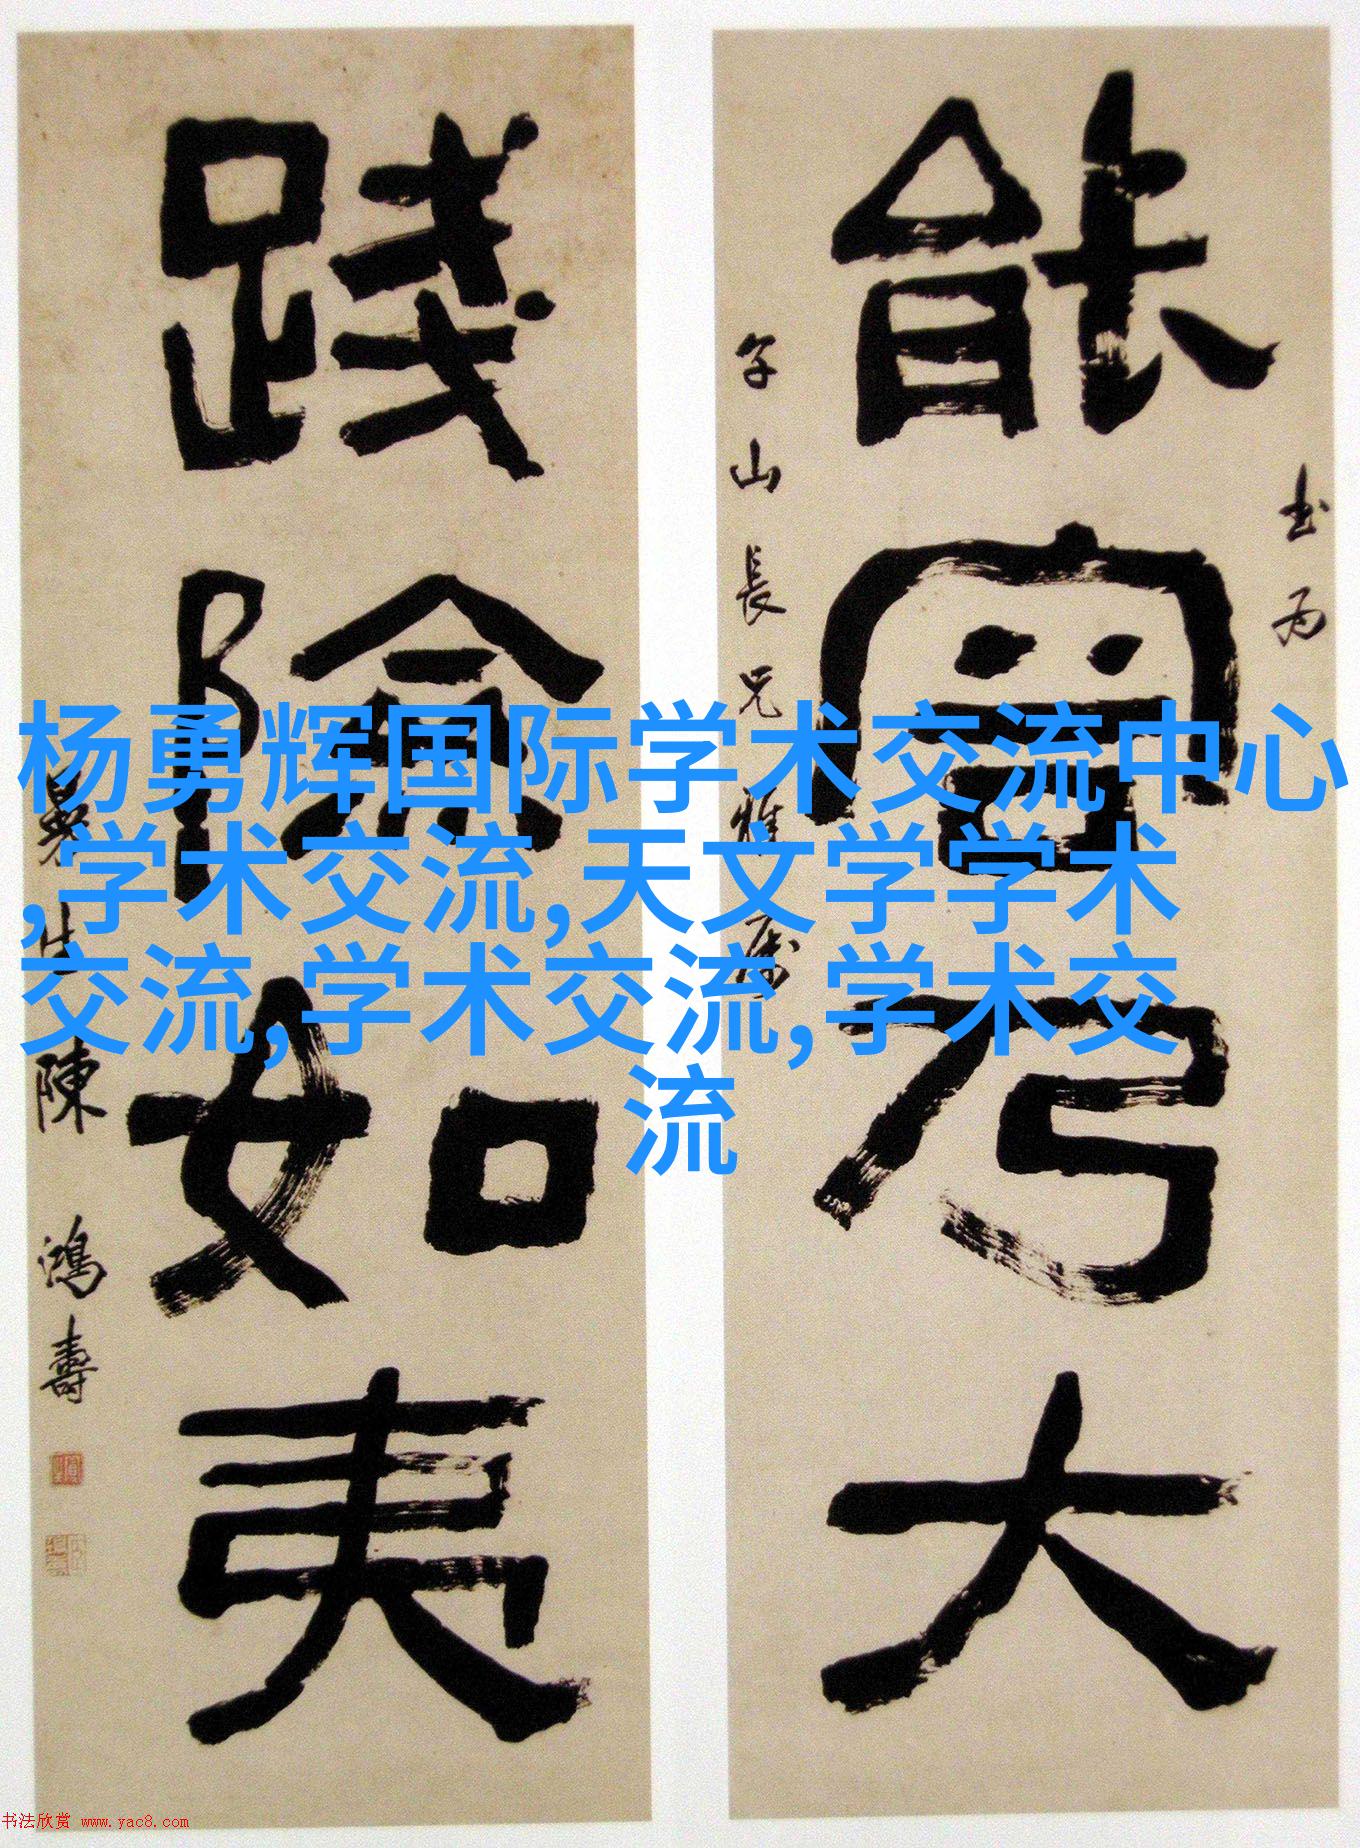 杨勇辉国际学术交流中心
,学术交流,天文学学术
交流,学术交流,学术交
流
书为
能 乃大
山長兄雅属
踐險如夷
曼生陳鴻壽
书法欣赏 www.yac8.com